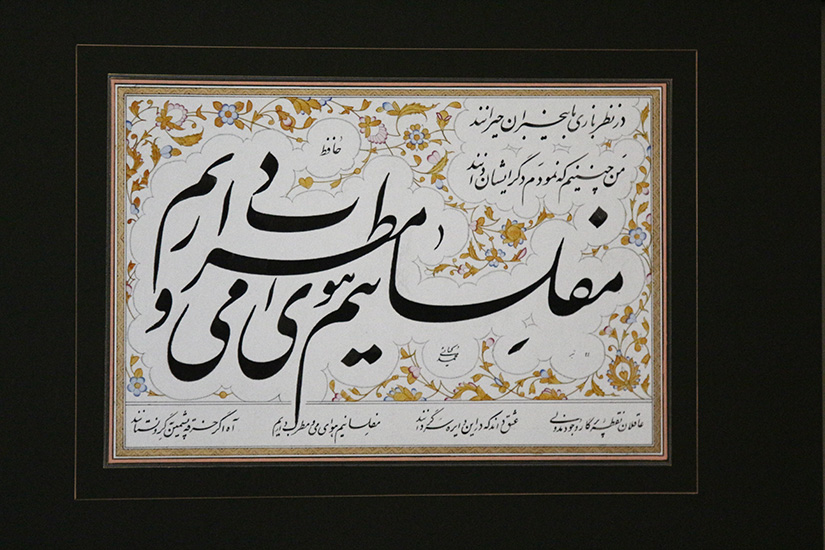 در نظربازی ما بیخبران حیرانند
من چنینم که نمودم دگر ایشان دانند
حافظ
مفلسانیم و هوای می و مطرب داریم
عاقلان نقطه پرگار وجودند ولی
عشق داند که در این دایره سرگردانند
مفلسانیم و هوای می و مطرب داریم
آه اگر خرقه پشمین به گرو نستانند